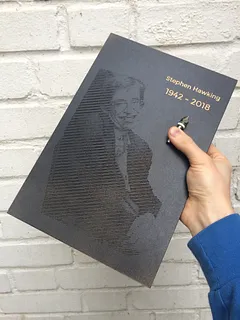 Stephen Hawking
1942 - 2018